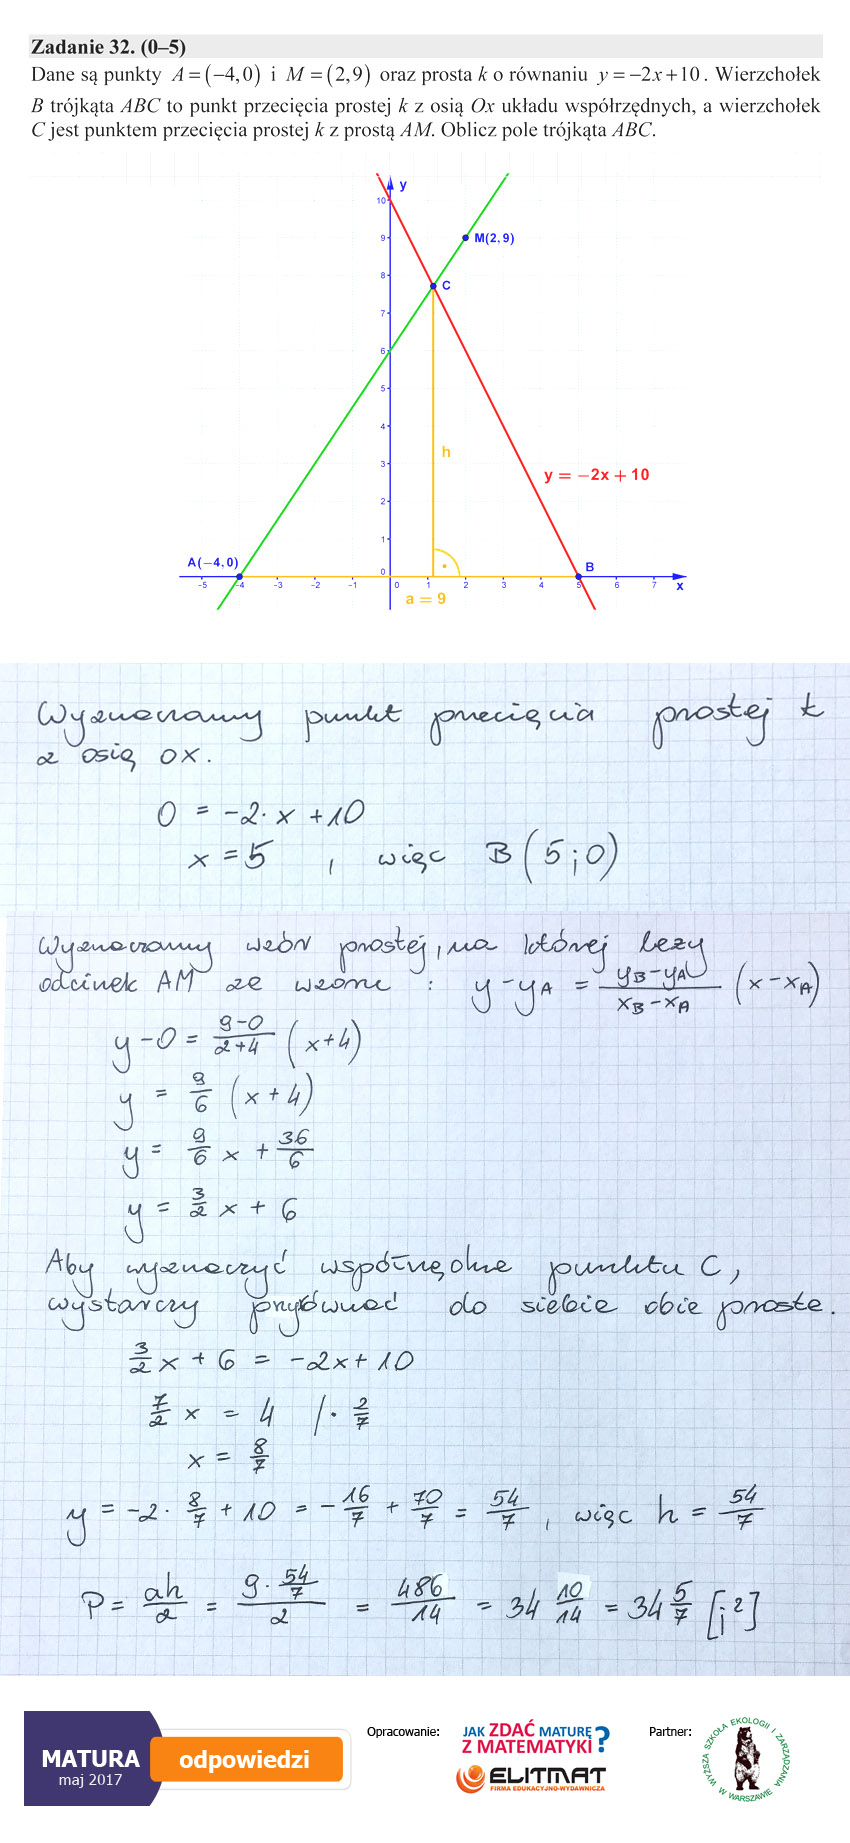 Zadanie 32. (0–5)
Dane są punkty A = (−4, 0) i M = (2, 9) oraz prosta k o równaniu y = −2x + 10. Wierzchołek
B trójkąta ABC to punkt przecięcia prostej k z osią Ox układu współrzędnych, a wierzchołek
C jest punktem przecięcia prostej k z prostą AM. Oblicz pole trójkąta ABC.
y
10
9
M(2, 9)
8
C
7
6
5
4
h
3
y = −2x + 10
2
1
A(−4, 0)
0
B
-5 -4 -3 -2 -1 0 1 2 3 4 5 6 7 x
a = 9
Wyznaczamy punkt przecięcia prostej k
z osią OX.
0 = -2· x + 10
x = 5 , więc B(5;0)
Wyznaczamy wzór prostej, na której leży
odcinek AM ze wzoru : y - yA = (yB - yA)/(xB - xA) (x - xA)
y - 0 = (9-0)/(2+4) (x+4)
y = 9/6 (x+4)
y = 9/6 x + 36/6
y = 3/2 x + 6
Aby wyznaczyć współrzędne punktu C,
wystarczy przyrównać do siebie obie proste.
3/2 x + 6 = -2x + 10
7/2 x = 4 /· 2/7
x = 8/7
y = -2 · 8/7 + 10 = - 16/7 + 70/7 = 54/7 , więc h = 54/7
P = ah/2 = (9 · 54/7)/2 = 486/14 = 34 10/14 = 34 5/7 [j²]
MATURA
maj 2017
odpowiedzi
Opracowanie:
JAK ZDAĆ MATURĘ
Z MATEMATYKI ?
ELITMAT
FIRMA EDUKACYJNO-WYDAWNICZA
Partner:
WYŻSZA SZKOŁA EKOLOGII I ZARZĄDZANIA
W WARSZAWIE